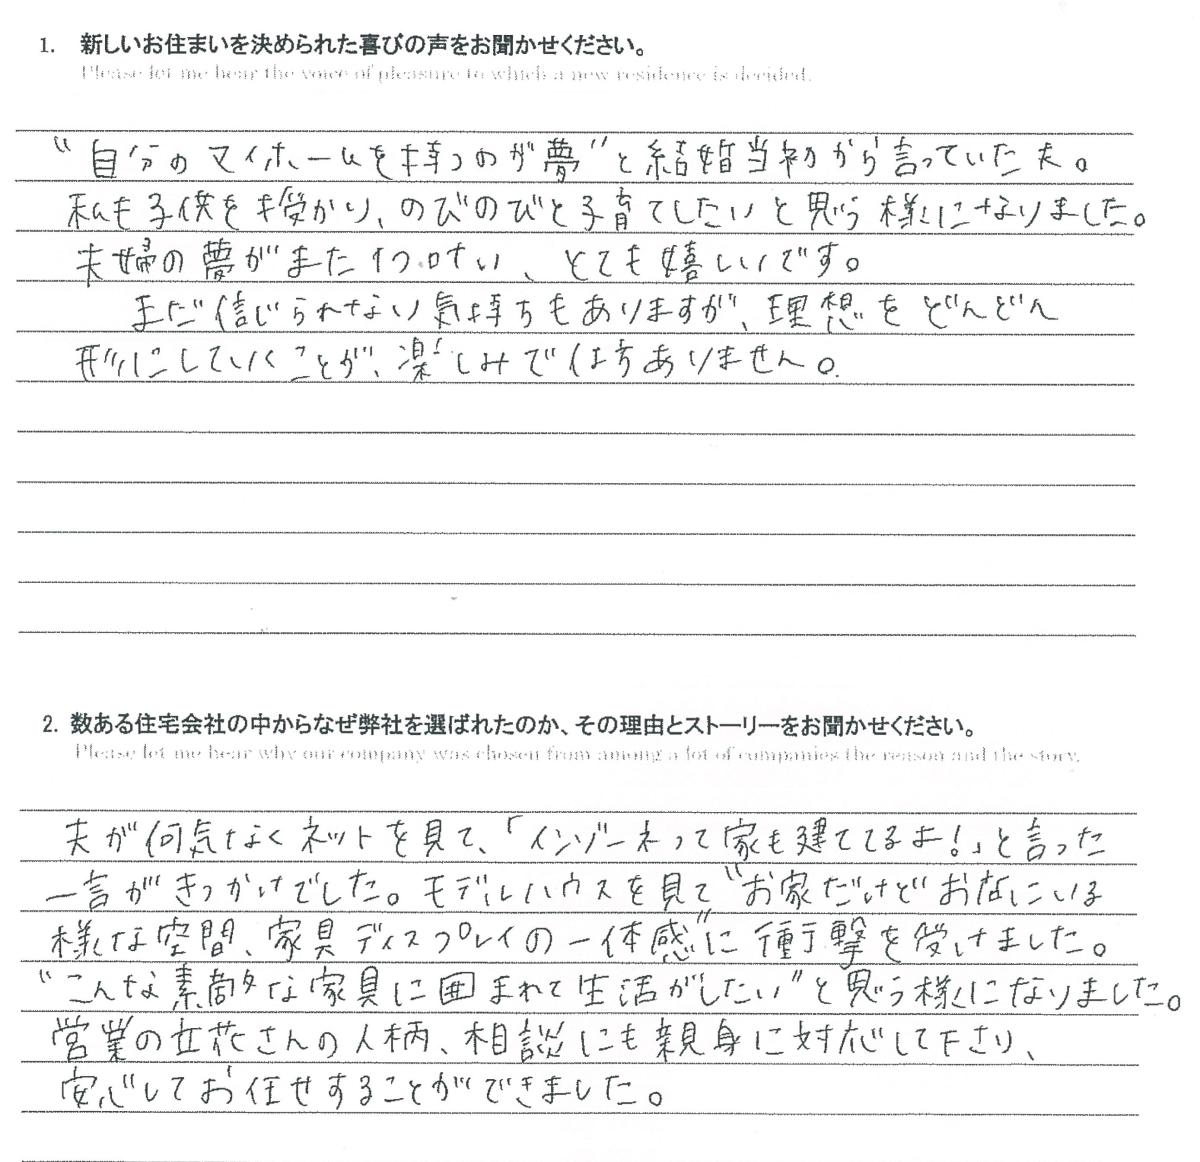 1. 新しいお住まいを決められた喜びの声をお聞かせください。
Please let me hear the voice of pleasure to which a new residence is decided.
“自分のマイホームを持つのが夢”と結婚当初から言っていた夫。
私も子供を授かり、のびのびと子育てしたいと思う様になりました。
夫婦の夢がまた1つ叶い、とても嬉しいです。
まだ信じられない気持ちもありますが、理想をどんどん
形にしていくことが、楽しみで仕方ありません。
2. 数ある住宅会社の中からなぜ弊社を選ばれたのか、その理由とストーリーをお聞かせください。
Please let me hear why our company was chosen from among a lot of companies the reason and the story.
夫が何気なくネットを見て、「インゾーネって家も建ててるよ!」と言った
一言がきっかけでした。モデルハウスを見て“お家だけどお店にいる
様な空間、家具ディスプレイの一体感”に衝撃を受けました。
“こんな素敵な家具に囲まれて生活がしたい”と思う様になりました。
営業の立花さんの人柄、相談にも親身に対応して下さり、
安心してお任せすることができました。